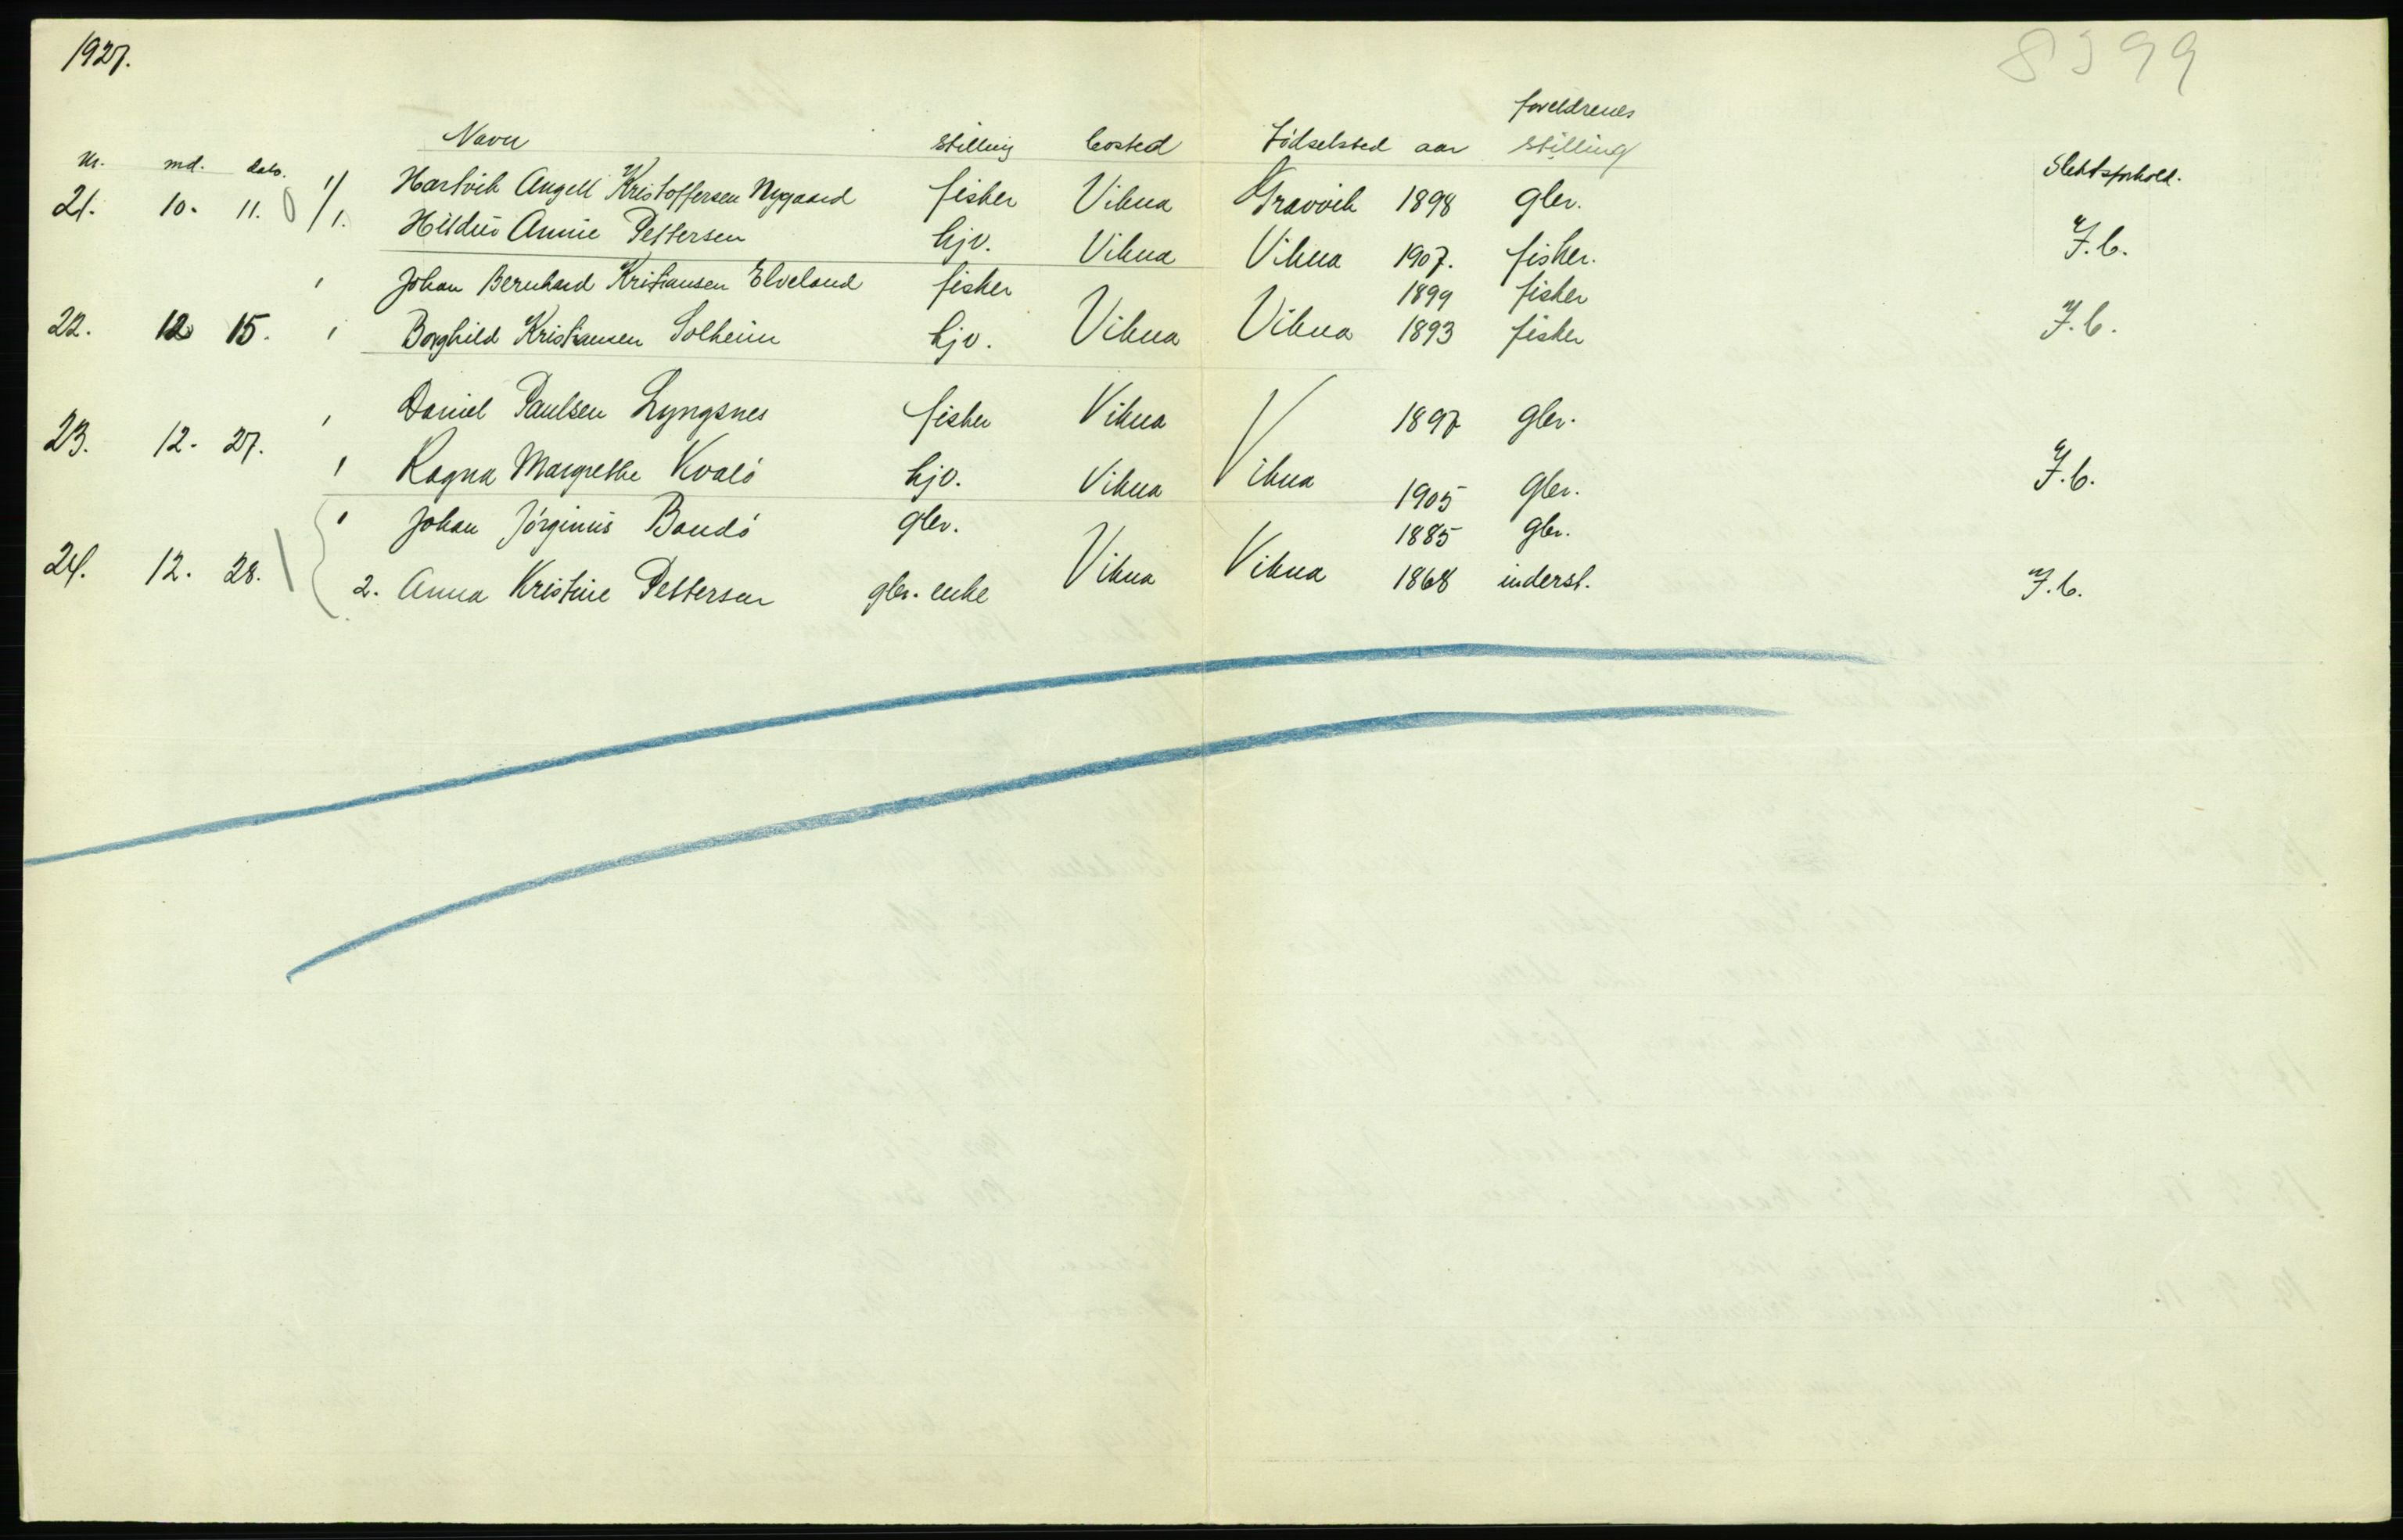 1927. 8399
foreldrenes
Navn stilling bosted Födselsted aar stilling
Nr. md. dato. Slektsforhold.
1/ Hartvik Angell Kristoffersen Nygaard fisker Vikna Gravvik 1898 gbr.
21. 10. 11. 0 /1. Hildur Annie Pettersen hjv. Vikna Vikna 1907. fisker. I.b.
1 Johan Bernhard Kristiansen Elveland fisker 1899 fisker
22. 12 15. 1 Borghild Kristiansen Solheim hjv. Vikna Vikna 1893 fisker I.b.
1 Daniel Paulsen Lyngsnes fisker Vikna 1897 gbr.
23. 12. 27. 1 Ragna Margrethe Kvalö hjv. Vikna Vikna 1905 gbr. I.b.
1 Johan Jörginus Bondö gbr. 1885 gbr.
24. 12. 28. 2. Anna Kristine Pettersen gbr. enke Vikna Vikna 1868 inderst. I.b.